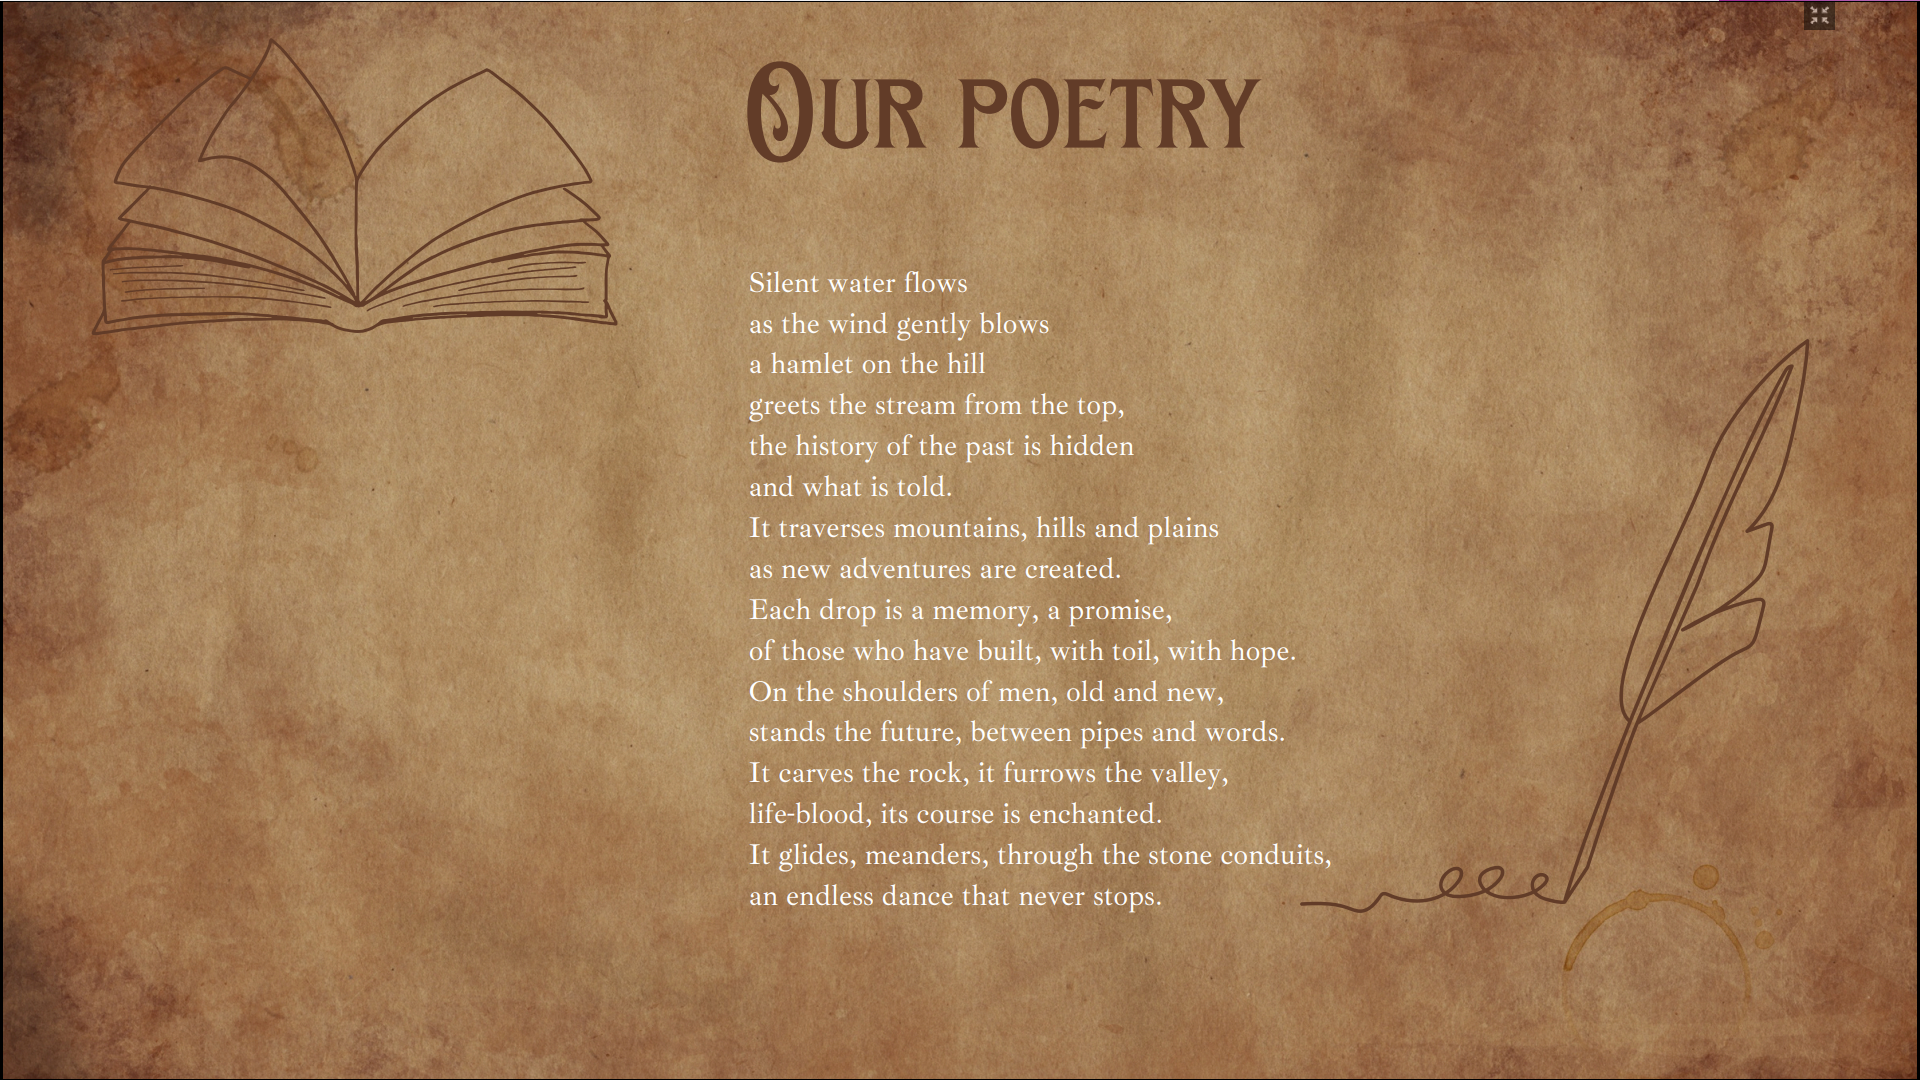 Our poetry
Silent water flows
as the wind gently blows
a hamlet on the hill
greets the stream from the top,
the history of the past is hidden
and what is told.
It traverses mountains, hills and plains
as new adventures are created.
Each drop is a memory, a promise,
of those who have built, with toil, with hope.
On the shoulders of men, old and new,
stands the future, between pipes and words.
It carves the rock, it furrows the valley,
life-blood, its course is enchanted.
It glides, meanders, through the stone conduits,
an endless dance that never stops.